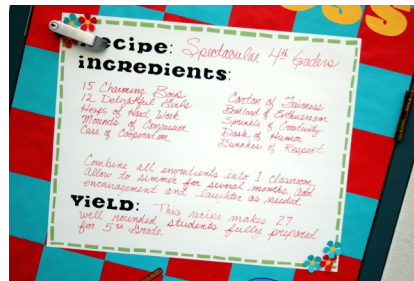 OSS
Recipe: Spectacular 4th Graders
ingredients:
15 Charming Boys
12 Delightful Girls
Heaps of Hard Work
Mounds of Compassion
Case of Cooperation
Carton of Fairness
Bowlload of Enthusiasm
Sprinkle of Creativity
Dash of Humor
Bunches of Respect
Combine all ingredients into 1 classroom.
Allow to simmer for several months. Add
encouragement and laughter as needed.
YieLD: This recipe makes 27
well rounded students fully prepared
for 5th Grade.